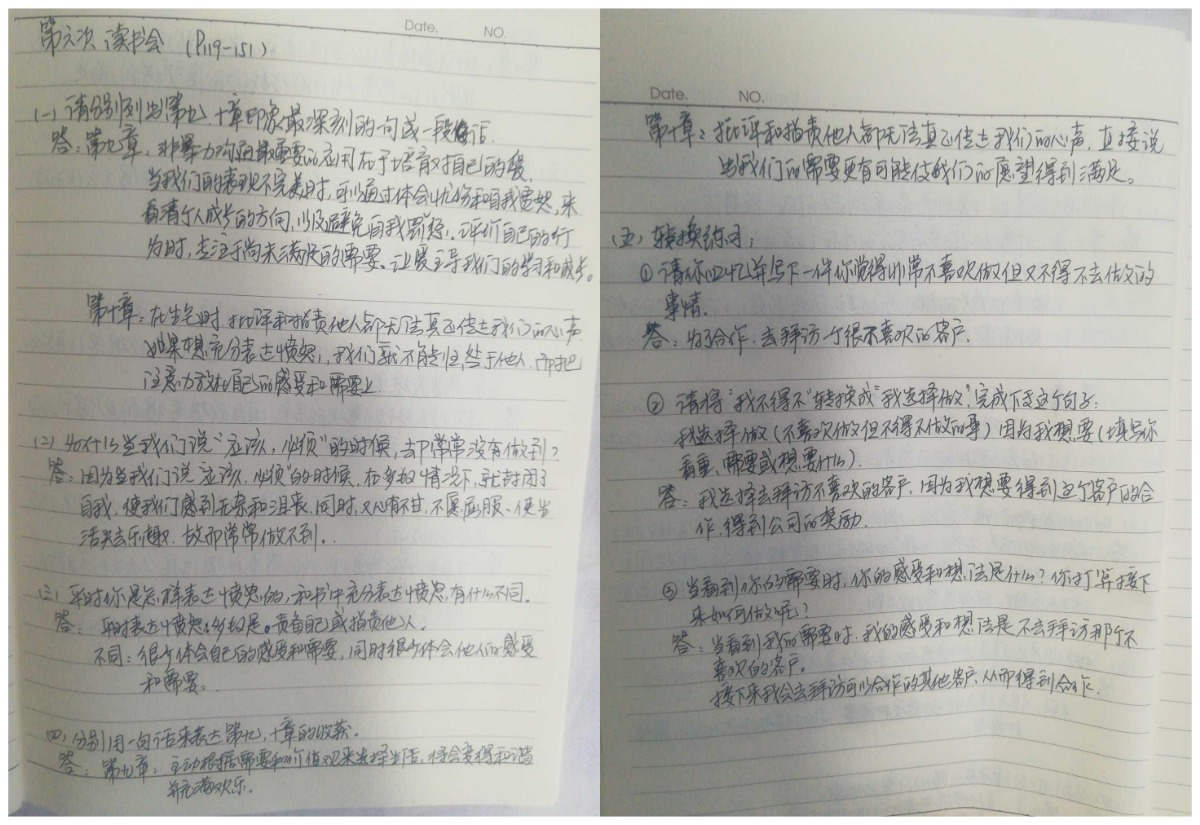 Date. NO.
第六次 读书会 (P119-151)
(一) 请分别列出第九、十章印象最深刻的一句或一段话.
答: 第九章: 非暴力沟通最重要的应用在于培育对自己的爱.
当我们的表现不完美时, 可以通过体会忧伤和自我宽恕, 来
看清个人成长的方向, 以及避免自我惩罚. 评价自己的行
为时, 专注于尚未满足的需要、让爱主导我们的学习和成长。
第十章: 在生气时, 批评和指责他人都无法真正传达我们的心声
如果想充分表达愤怒, 我们就不能归咎于他人, 而把
注意力放在自己的感受和需要上.
(二) 为什么当我们说"应该, 必须"的时候, 却常常没有做到?
答: 因为当我们说"应该、必须"的时候, 在多数情况下, 就封闭了
自我, 使我们感到无奈和沮丧, 同时, 又心有不甘, 不愿屈服、使生
活失去乐趣. 故而常常做不到。
(三) 平时你是怎样表达愤怒的, 和书中充分表达愤怒, 有什么不同.
答: 平时表达愤怒多数是责备自己或指责他人。
不同: 很少体会自己的感受和需要, 同时很少体会他人的感受
和需要。
(四) 分别用一句话来表达第九、十章的收获.
答: 第九章: 主动根据需要和价值观来选择生活, 将会变得和谐
并充满欢乐.
Date. NO.
第十章: 批评和指责他人都无法真正传达我们的心声, 直接说
出我们的需要更有可能使我们的愿望得到满足。
(五) 转换练习:
① 请你回忆并写下一件你觉得非常不喜欢做但又不得不去做的
事情.
答: 为了合作, 去拜访一个很不喜欢的客户.
② 请将"我不得不"转换成"我选择做", 完成下面这个句子:
我选择做(不喜欢做但不得不做的事) 因为我想要(填写你
看重、需要或想要什么).
答: 我选择去拜访不喜欢的客户, 因为我想要得到这个客户的合
作, 得到公司的奖励.
③ 当看到你的需要时, 你的感受和想法是什么? 你打算接下
来如何做呢?
答: 当看到我的需要时, 我的感受和想法是不去拜访那个不
喜欢的客户。
接下来我会去拜访可以合作的其他客户, 从而得到合作.